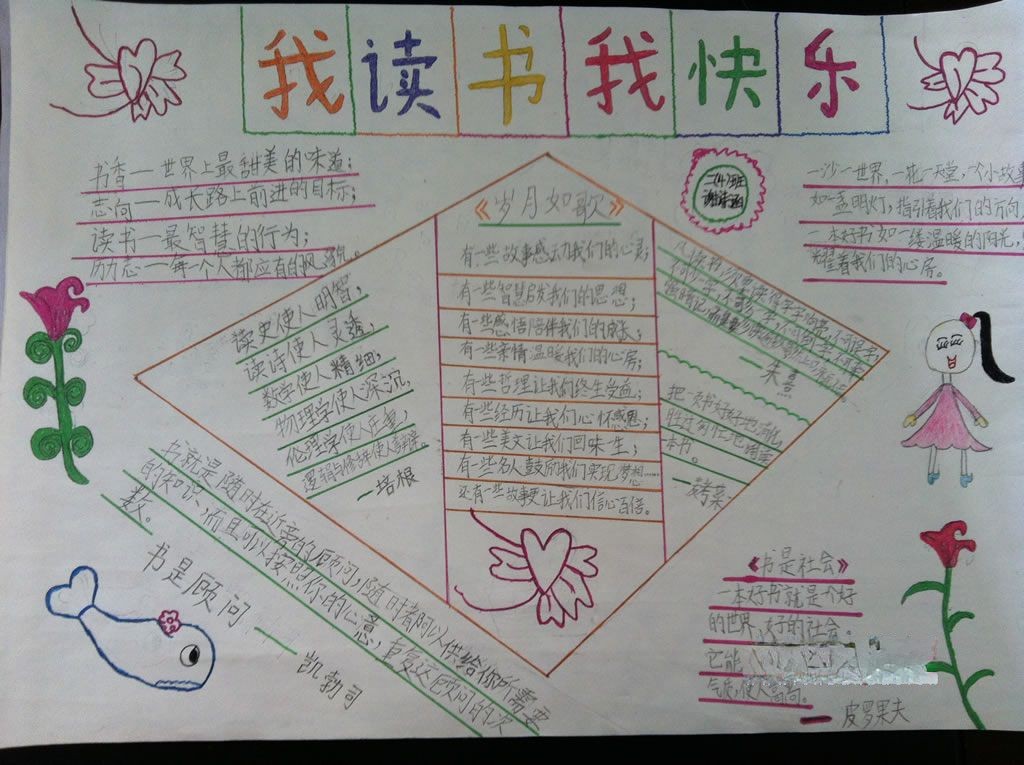 我读书我快乐
书香一世界上最甜美的味道;
志向一成长路上前进的目标;
读书一最智慧的行为;
励志一每一个人都应有的风貌。
二(4)班
一沙一世界,一花一天堂,一个小故事
如一盏明灯,指引着我们的方向,
一本好书如一缕温暖的阳光,
耀着我们的心房。
读史使人明智,
读诗使人灵透,
数学使人精细,
物理学使人深沉,
伦理学使人庄重,
逻辑与修辞使人善辩。
一培根
《岁月如歌》
有一些故事感动我们的心灵;
有一些智慧启发我们的思想;
有一些感悟陪伴我们的成长;
有一些亲情温暖我们的心房;
有一些哲理让我们终生受益;
有一些经历让我们心怀感恩;
有一些美文让我们回味一生;
有一些名人鼓励我们实现梦想……
还有一些故事更让我们信心百倍。
凡读书,须要读得字字响亮,不可误一字,
不可少一字,不可多一字,不可倒一字,不可牵
强暗记,
一朱熹
把一本书好好地消化,
胜过匆忙地阅读
本书。
书就是随时在近旁的顾问,随时都可以供给你所需要
的知识,而且可以按照你的心意,重复这顾问的次
数。
书是顾问
一凯勃司
《书是社会》
一本好书就是个好
的世界,好的社会。
它能
气质,使人崇高。
一皮罗果夫